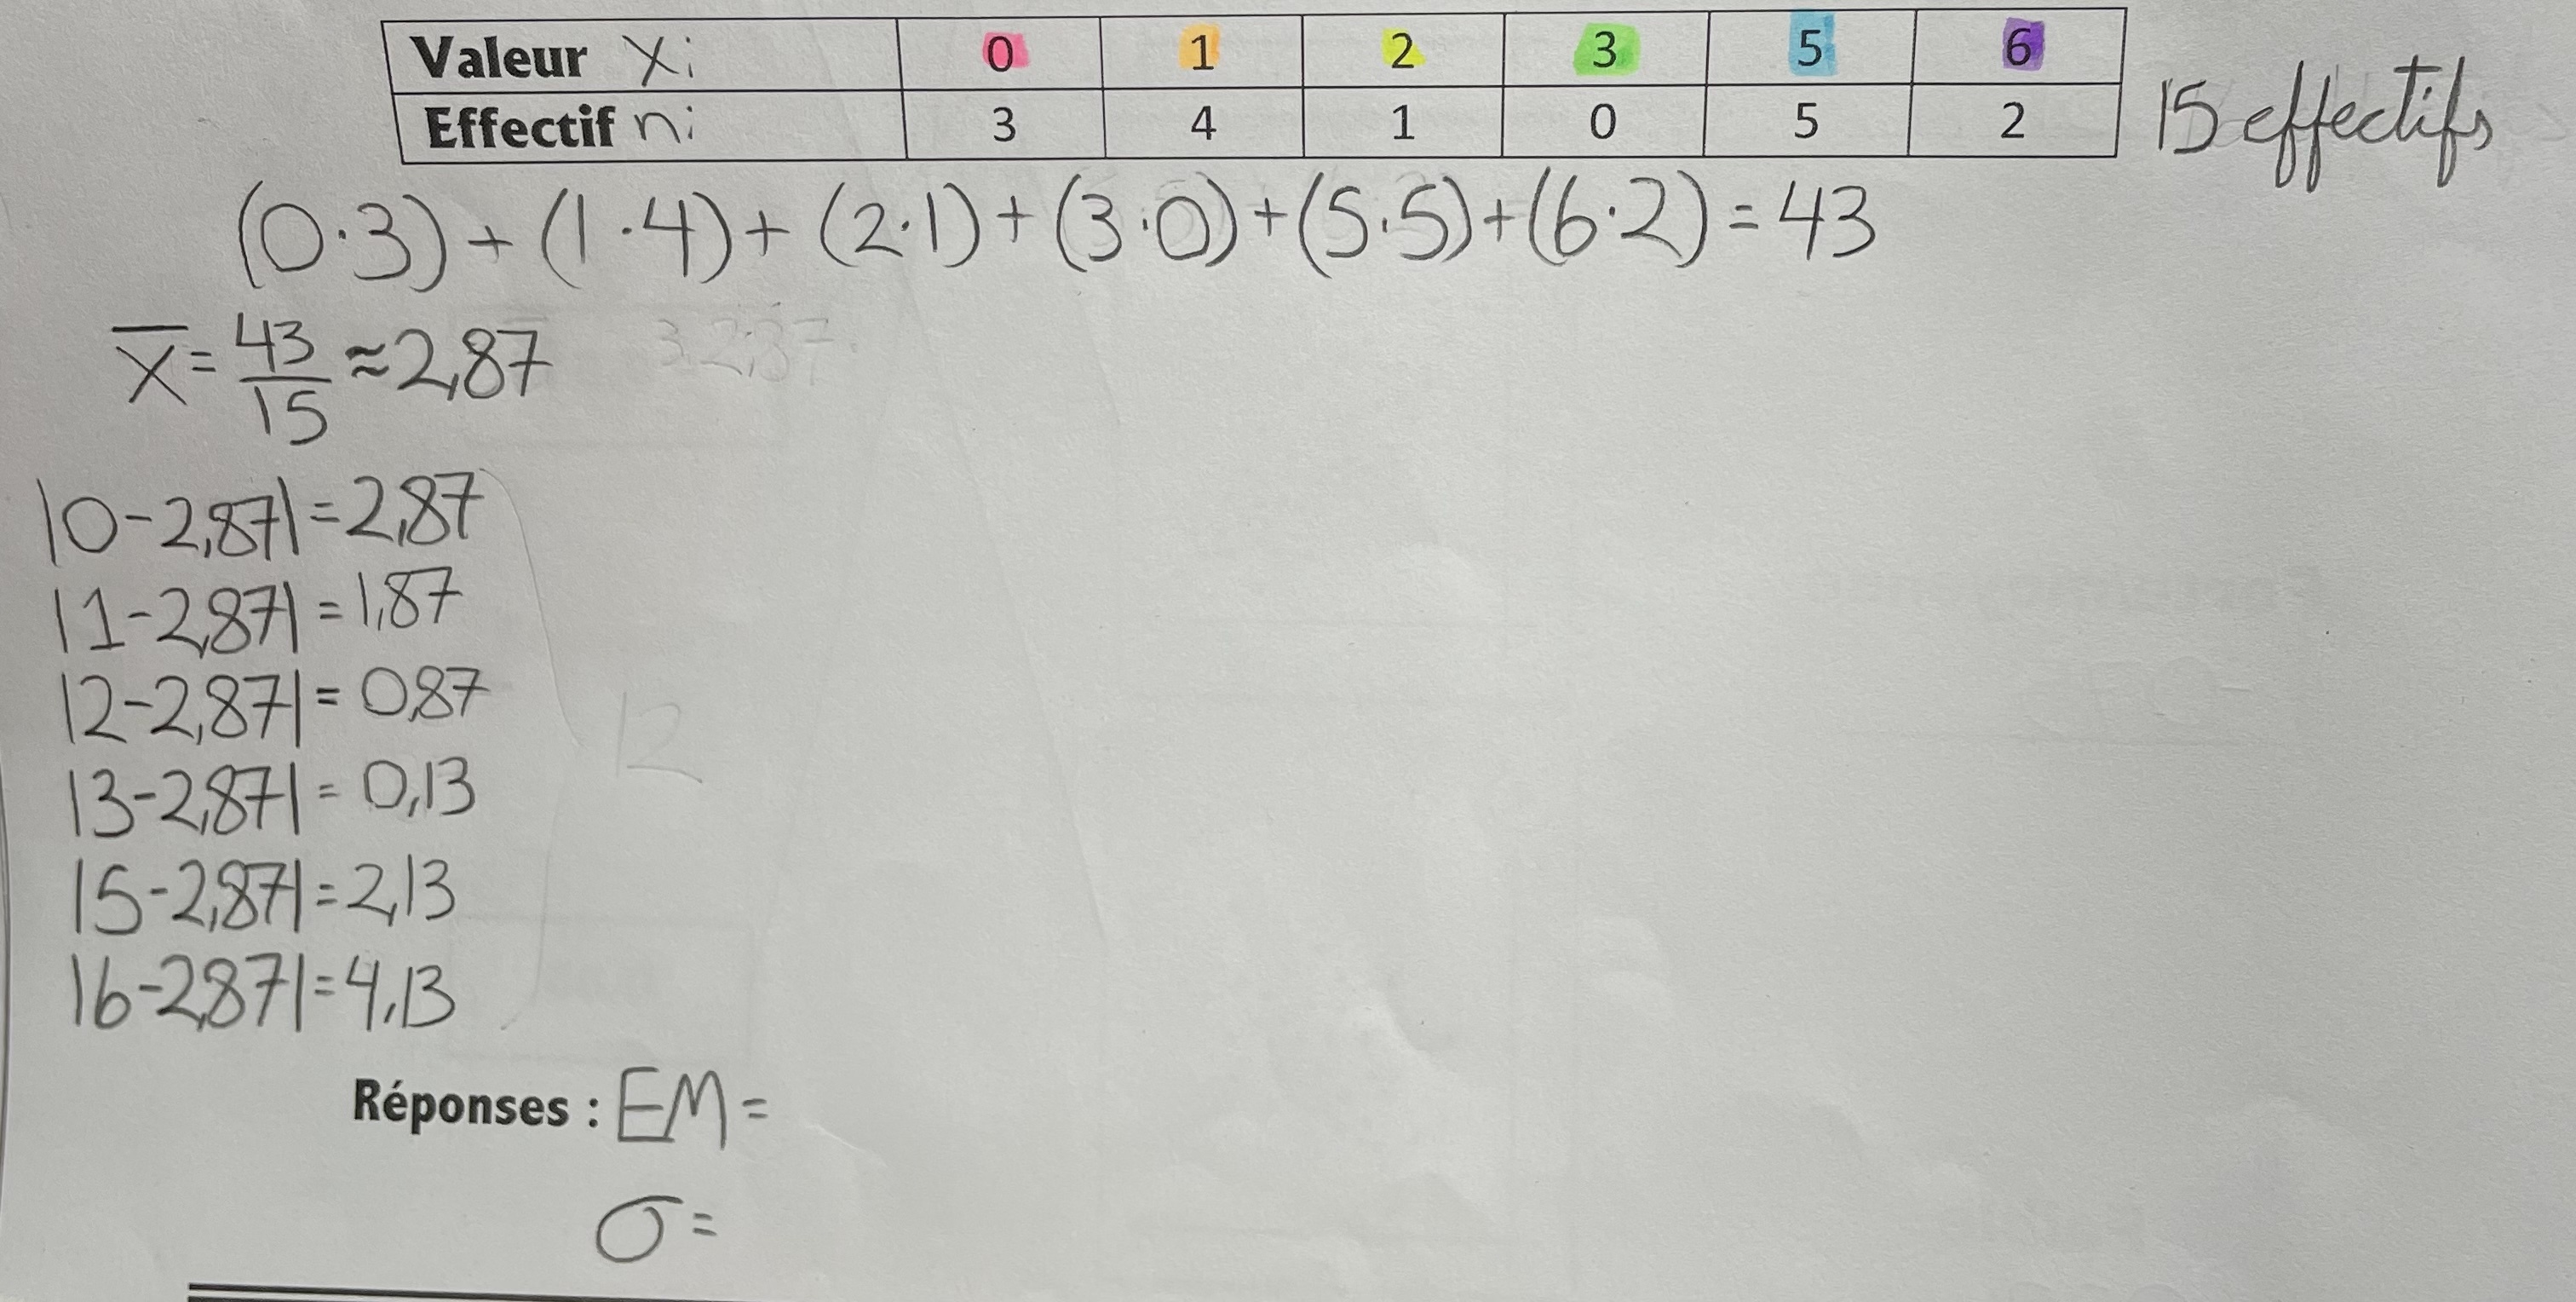 Valeur xi 0 1 2 3 5 6
Effectif ni 3 4 1 0 5 2 15 effectifs
(0·3)+(1·4)+(2·1)+(3·0)+(5·5)+(6·2)=43
x̄=43/15≈2,87 3.2,87
|0-2,87|=2,87
|1-2,87|=1,87
|2-2,87|=0,87
12
|3-2,87|=0,13
|5-2,87|=2,13
|6-2,87|=4,13
Réponses : EM=
σ=